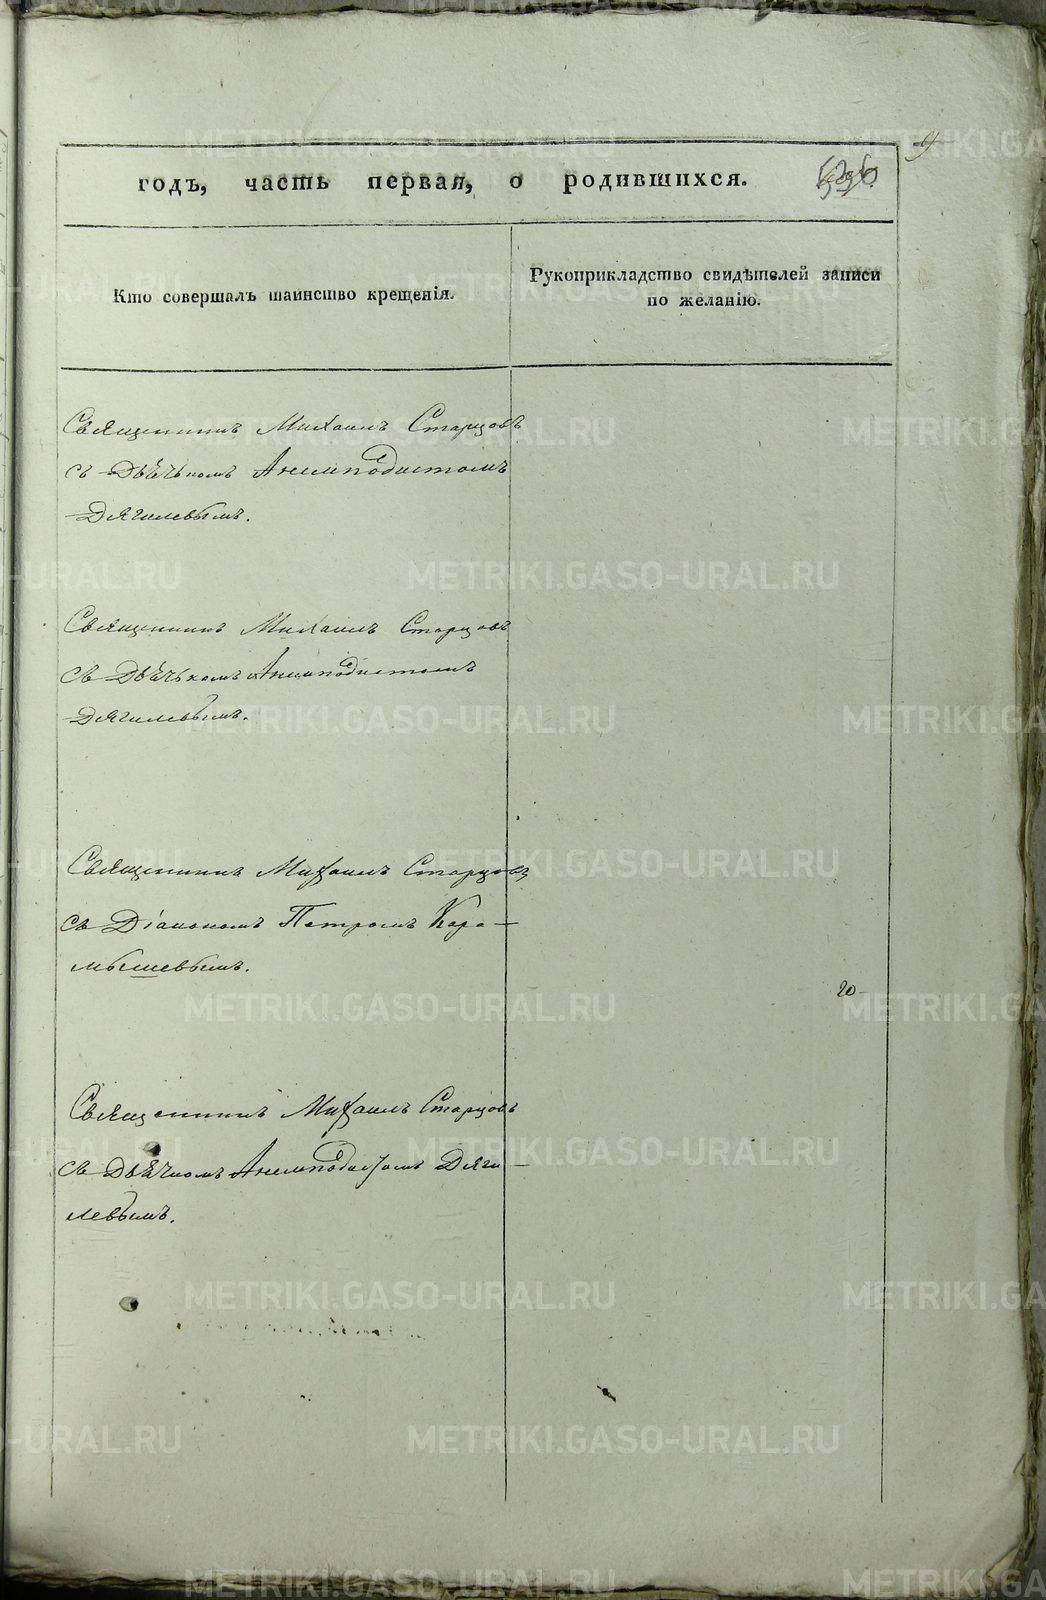 годъ, часть первая, о родившихся.
Кто совершалъ таинство крещенія.
Рукоприкладство свидѣтелей записи
по желанію.
Священникъ Михаилъ Старцовъ
съ Дьячькомъ Анемподистомъ
Дягилевымъ.
Священникъ Михаилъ Старцовъ
съ Дьячькомъ Анемподистомъ
Дягилевымъ.
Священникъ Михаилъ Старцовъ
съ Діакономъ Петромъ Кара-
мышевымъ.
20
Священникъ Михаилъ Старцовъ
съ Дьячкомъ Анемподистомъ Дяги-
левымъ.
METRIKI.GASO-URAL.RU